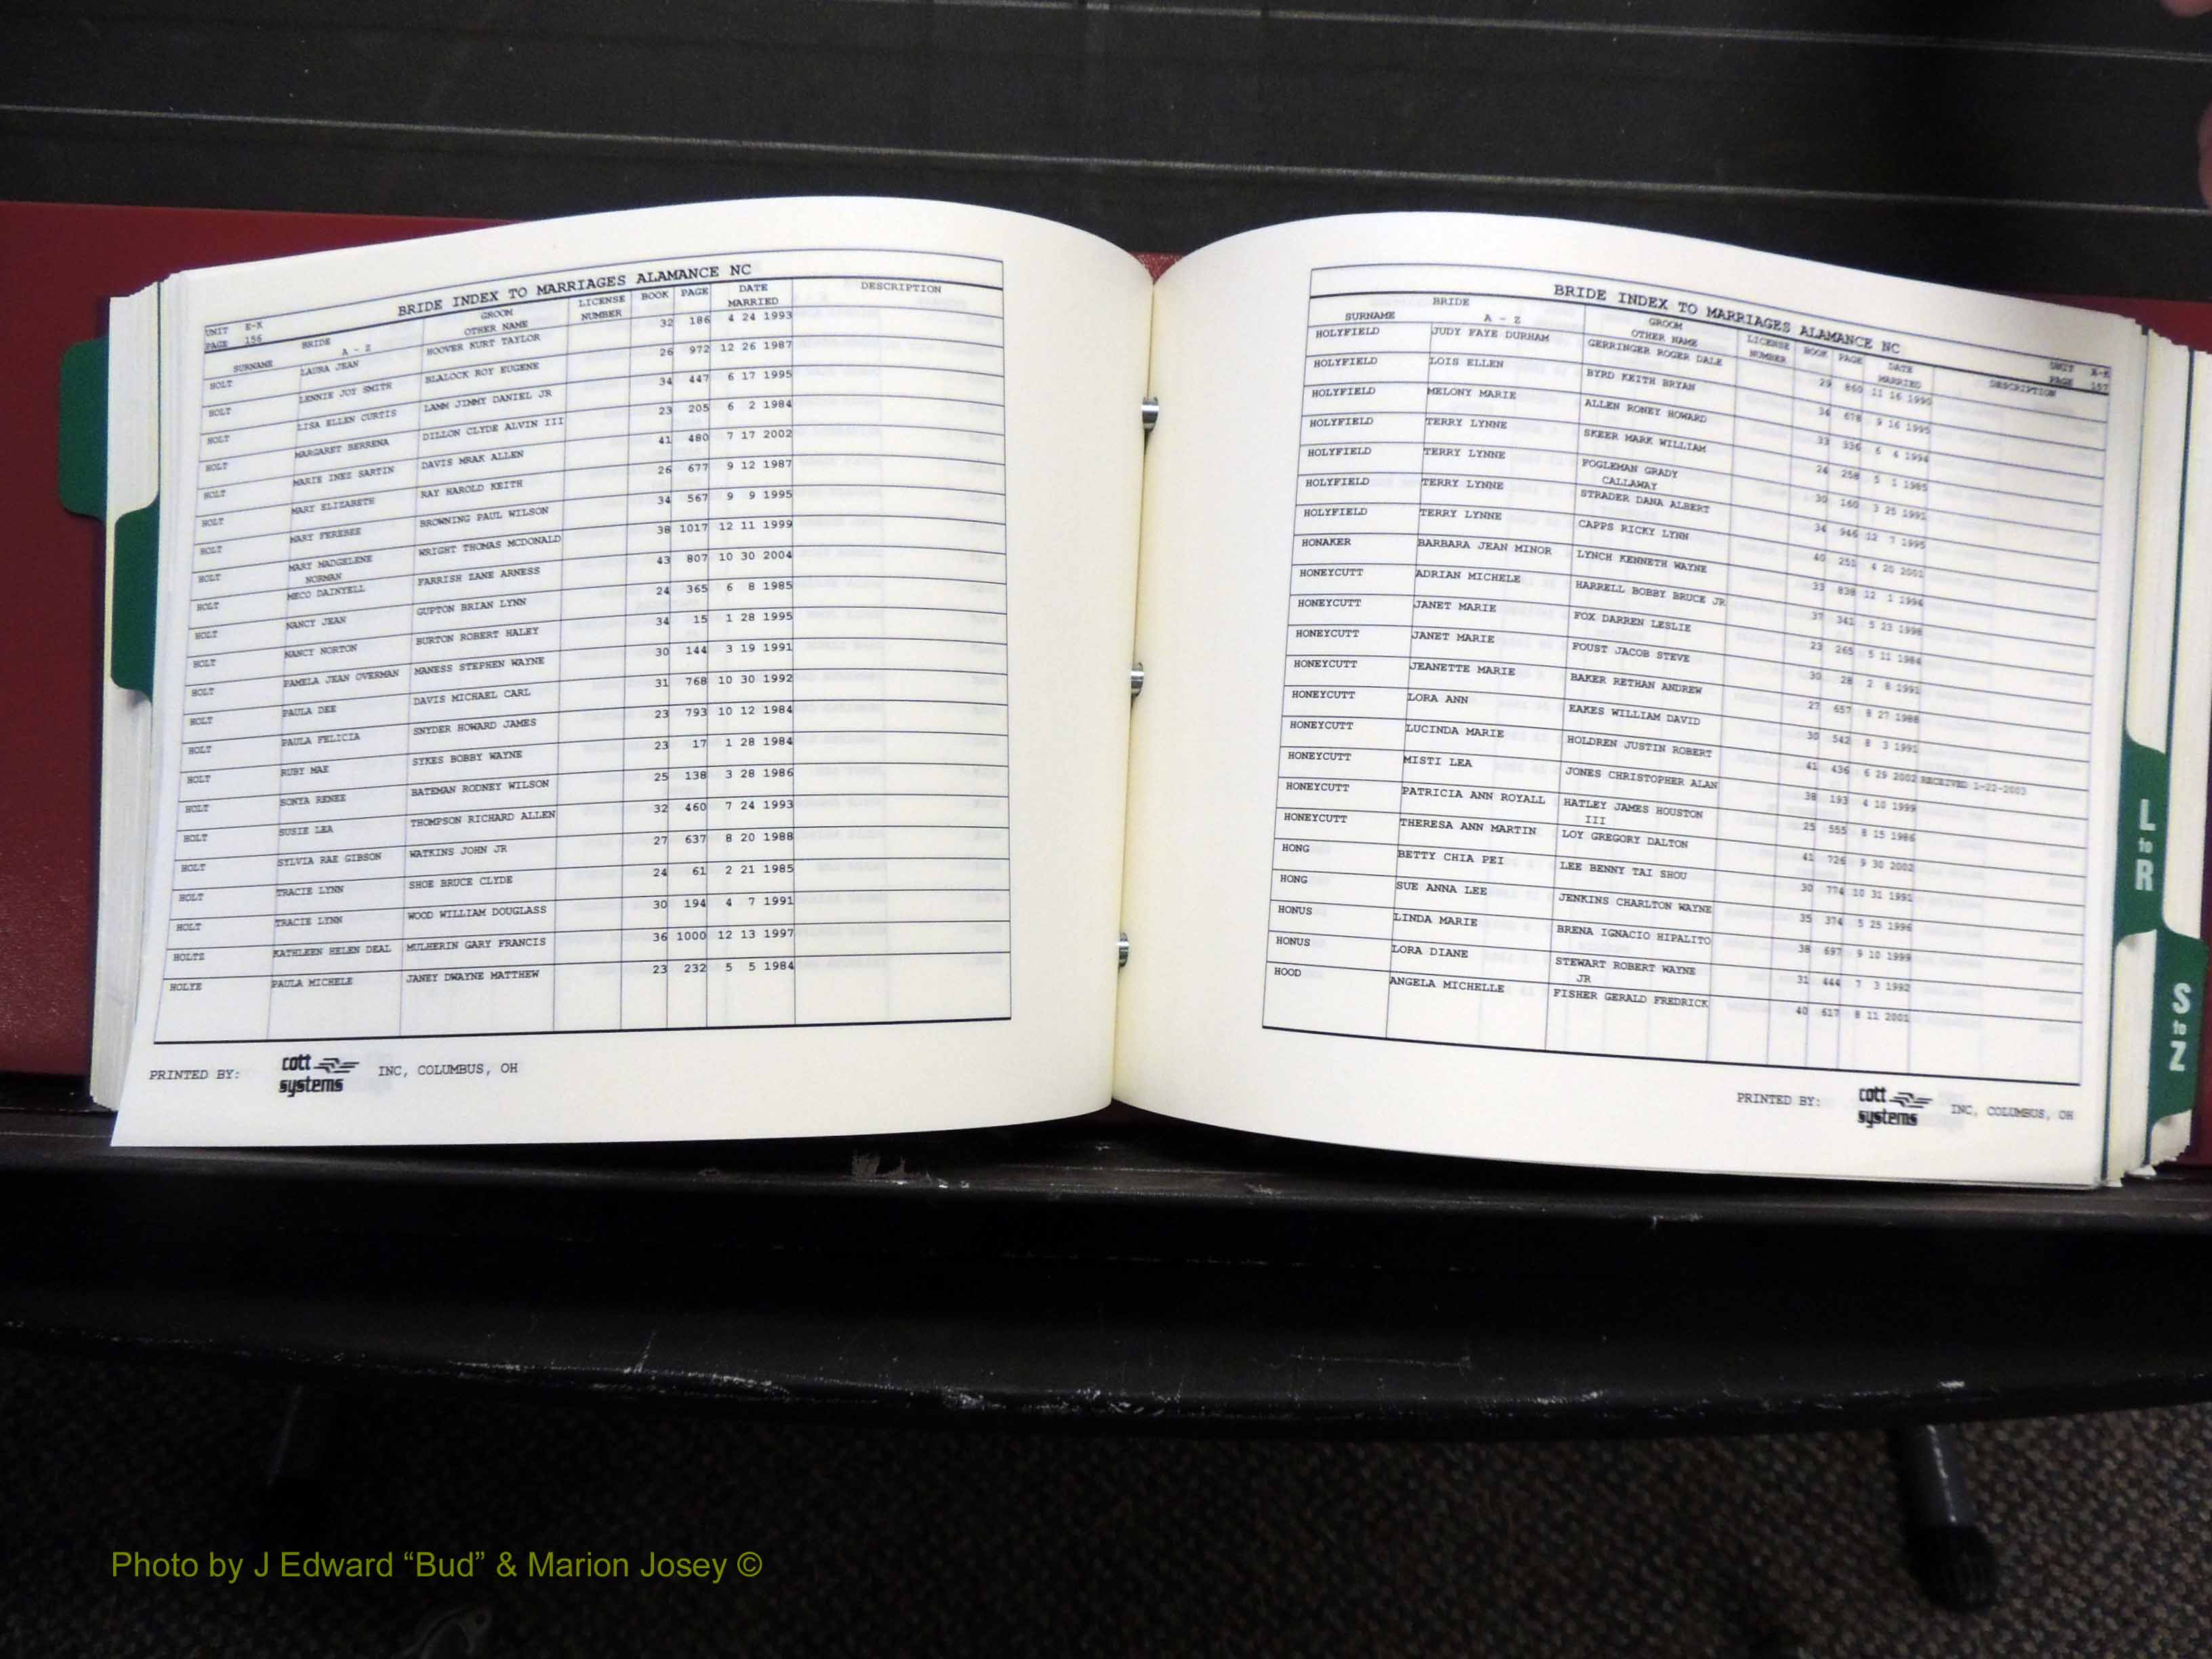 BRIDE INDEX TO MARRIAGES ALAMANCE NC
UNIT E-K
PAGE 156
SURNAME BRIDE A - Z GROOM OTHER NAME LICENSE NUMBER BOOK PAGE DATE MARRIED DESCRIPTION
HOLT LAURA JEAN HOOVER KURT TAYLOR 32 186 4 24 1993
HOLT LENNIE JOY SMITH BLALOCK ROY EUGENE 26 972 12 26 1987
HOLT LISA ELLEN CURTIS LAMM JIMMY DANIEL JR 34 447 6 17 1995
HOLT MARGARET BERRENA DILLON CLYDE ALVIN III 23 205 6 2 1984
HOLT MARIE INEZ SARTIN DAVIS MRAK ALLEN 41 480 7 17 2002
HOLT MARY ELIZABETH RAY HAROLD KEITH 26 677 9 12 1987
HOLT MARY FEREBEE BROWNING PAUL WILSON 34 567 9 9 1995
HOLT MARY MADGELENE NORMAN WRIGHT THOMAS MCDONALD 38 1017 12 11 1999
HOLT MECO DAINYELL FARRISH ZANE ARNESS 43 807 10 30 2004
HOLT NANCY JEAN GUPTON BRIAN LYNN 24 365 6 8 1985
HOLT NANCY NORTON BURTON ROBERT HALEY 34 15 1 28 1995
HOLT PAMELA JEAN OVERMAN MANESS STEPHEN WAYNE 30 144 3 19 1991
HOLT PAULA DEE DAVIS MICHAEL CARL 31 768 10 30 1992
HOLT PAULA FELICIA SNYDER HOWARD JAMES 23 793 10 12 1984
HOLT RUBY MAE SYKES BOBBY WAYNE 23 17 1 28 1984
HOLT SONYA RENEE BATEMAN RODNEY WILSON 25 138 3 28 1986
HOLT SUSIE LEA THOMPSON RICHARD ALLEN 32 460 7 24 1993
HOLT SYLVIA RAE GIBSON WATKINS JOHN JR 27 637 8 20 1988
HOLT TRACIE LYNN SHOE BRUCE CLYDE 24 61 2 21 1985
HOLT TRACIE LYNN WOOD WILLIAM DOUGLASS 30 194 4 7 1991
HOLTE KATHLEEN HELEN DEAL MULHERIN GARY FRANCIS 36 1000 12 13 1997
HOLYE PAULA MICHELE JANEY DWAYNE MATTHEW 23 232 5 5 1984
PRINTED BY: cott systems INC, COLUMBUS, OH
BRIDE INDEX TO MARRIAGES ALAMANCE NC
UNIT E-K
PAGE 157
SURNAME BRIDE A - Z GROOM OTHER NAME LICENSE NUMBER BOOK PAGE DATE MARRIED DESCRIPTION
HOLYFIELD JUDY FAYE DURHAM GERRINGER ROGER DALE 29 860 11 16 1990
HOLYFIELD LOIS ELLEN BYRD KEITH BRYAN 34 678 9 16 1995
HOLYFIELD MELONY MARIE ALLEN RONEY HOWARD 33 336 6 4 1994
HOLYFIELD TERRY LYNNE SKEER MARK WILLIAM 24 258 5 1 1985
HOLYFIELD TERRY LYNNE FOGLEMAN GRADY CALLAWAY 30 160 3 25 1991
HOLYFIELD TERRY LYNNE STRADER DANA ALBERT 34 946 12 7 1995
HOLYFIELD TERRY LYNNE CAPPS RICKY LYNN 40 251 4 20 2001
HONAKER BARBARA JEAN MINOR LYNCH KENNETH WAYNE 33 838 12 1 1994
HONEYCUTT ADRIAN MICHELE HARRELL BOBBY BRUCE JR 37 341 5 23 1998
HONEYCUTT JANET MARIE FOX DARREN LESLIE 23 265 5 11 1984
HONEYCUTT JANET MARIE FOUST JACOB STEVE 30 28 2 8 1991
HONEYCUTT JEANETTE MARIE BAKER RETHAN ANDREW 27 657 8 27 1988
HONEYCUTT LORA ANN EAKES WILLIAM DAVID 30 542 8 3 1991
HONEYCUTT LUCINDA MARIE HOLDREN JUSTIN ROBERT 41 436 6 29 2002 RECEIVED 1-22-2003
HONEYCUTT MISTI LEA JONES CHRISTOPHER ALAN 38 193 4 10 1999
HONEYCUTT PATRICIA ANN ROYALL HATLEY JAMES HOUSTON III 25 555 8 15 1986
HONEYCUTT THERESA ANN MARTIN LOY GREGORY DALTON 41 726 9 30 2002
HONG BETTY CHIA PEI LEE BENNY TAI SHOU 30 774 10 31 1991
HONG SUE ANNA LEE JENKINS CHARLTON WAYNE 35 374 5 25 1996
HONUS LINDA MARIE BRENA IGNACIO HIPALITO 38 697 9 10 1999
HONUS LORA DIANE STEWART ROBERT WAYNE JR 31 444 7 3 1992
HOOD ANGELA MICHELLE FISHER GERALD FREDRICK 40 617 8 11 2001
PRINTED BY: cott systems INC, COLUMBUS, OH
L to R
S to Z
Photo by J Edward “Bud” & Marion Josey ©